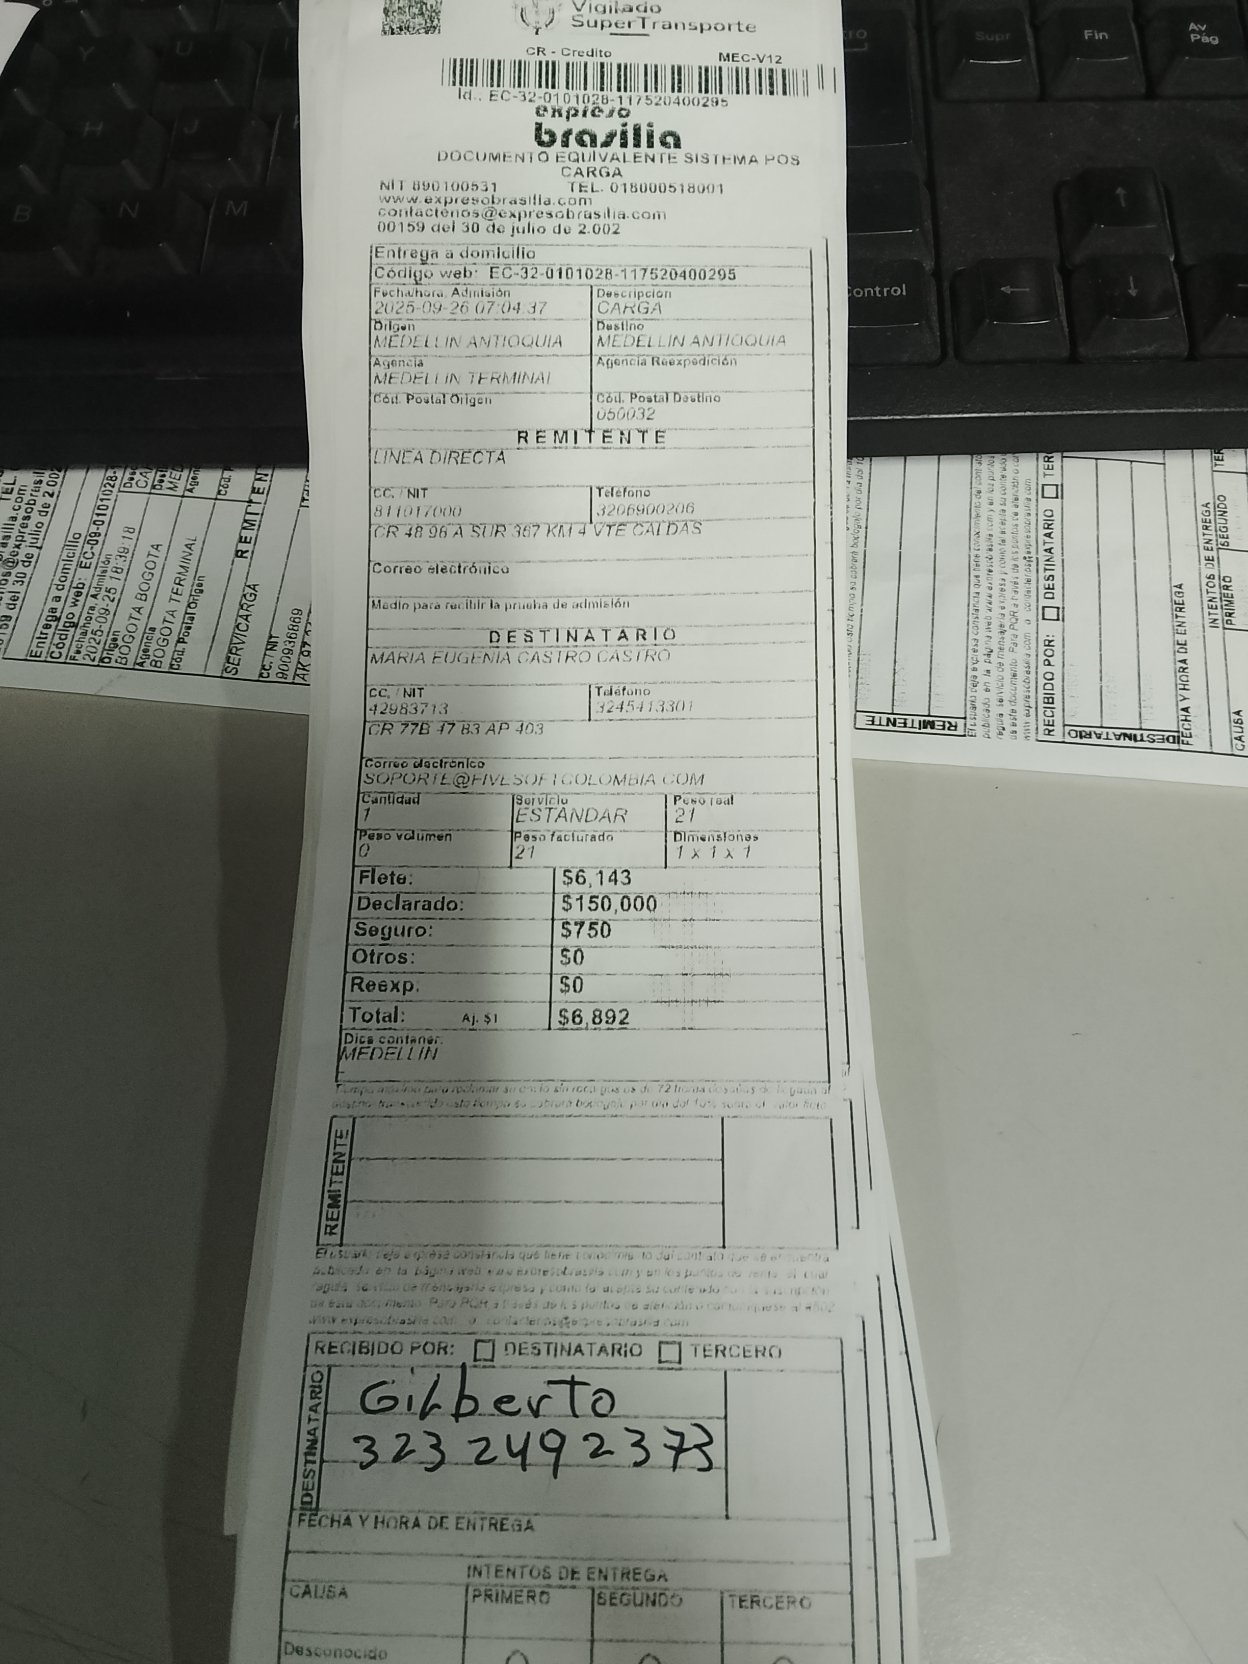 Vigilado
SuperTransporte
CR - Credito MEC-V12
Id.: EC-32-0101028-117520400295
expreso
brasilia
DOCUMENTO EQUIVALENTE SISTEMA POS
CARGA
NIT 890100531 TEL. 018000518001
www.expresobrasilia.com
contactenos@expresobrasilia.com
00159 del 30 de julio de 2.002
Entrega a domicilio
Código web: EC-32-0101028-117520400295
Fecha/hora, Admisión Descripción
2025-09-26 07:04:37 CARGA
Origen Destino
MEDELLIN ANTIOQUIA MEDELLIN ANTIOQUIA
Agencia Agencia Reexpedición
MEDELLIN TERMINAL
Cód. Postal Origen Cód. Postal Destino
050032
REMITENTE
LINEA DIRECTA
CC. / NIT Teléfono
811017000 3206900206
CR 48 96 A SUR 367 KM 4 VTE CALDAS
Correo electrónico
Medio para recibir la prueba de admisión
DESTINATARIO
MARIA EUGENIA CASTRO CASTRO
CC. / NIT Teléfono
42983713 3245413301
CR 77B 47 83 AP 403
Correo electrónico
SOPORTE@FIVESOFTCOLOMBIA.COM
Cantidad Servicio Peso real
1 ESTANDAR 21
Peso volumen Peso facturado Dimensiones
0 21 1 x 1 x 1
Flete: $6,143
Declarado: $150,000
Seguro: $750
Otros: $0
Reexp: $0
Total: Aj. $1 $6,892
Dice contener:
MEDELLIN
REMITENTE
RECIBIDO POR: DESTINATARIO TERCERO
DESTINATARIO
Gilberto
323 2492373
FECHA Y HORA DE ENTREGA
INTENTOS DE ENTREGA
CAUSA PRIMERO SEGUNDO TERCERO
Desconocido
Supr Fin Av Pág
Control
Y U
H J
B N M
00159 del 30 de julio de 2.002
Entrega a domicilio
Código web: EC-09-0101028-
Fecha/hora, Admisión
2025-09-25 18:39:18
Origen
BOGOTA BOGOTA
Agencia
BOGOTA TERMINAL
Cód. Postal Origen
REMITEN
SERVICARGA
CC. / NIT
900936669
REMITENTE
RECIBIDO POR: DESTINATARIO TER
DESTINATARIO
FECHA Y HORA DE ENTREGA
INTENTOS DE ENTREGA
CAUSA PRIMERO SEGUNDO TER